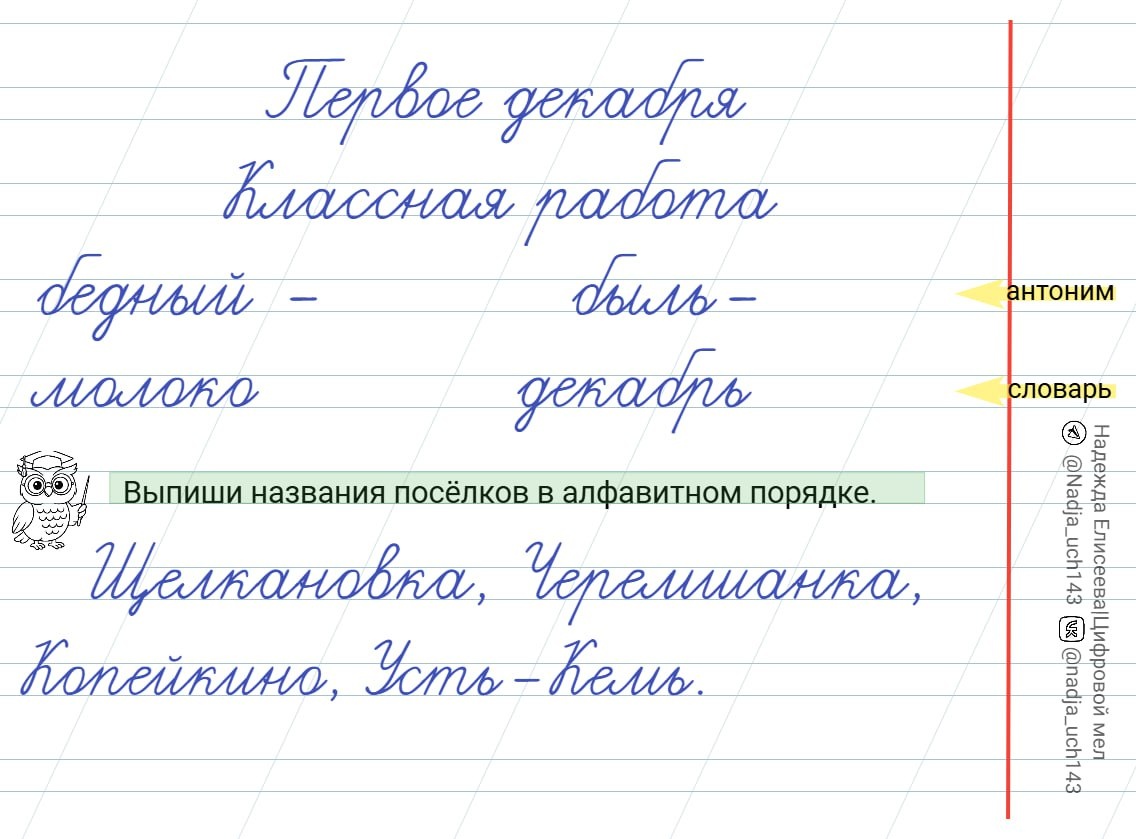 Первое декабря
Классная работа
бедный – быль –
антоним
молоко декабрь
словарь
Выпиши названия посёлков в алфавитном порядке.
Щелкановка, Черемшанка,
Копейкино, Усть – Кемь.
Надежда Елисеева|Цифровой мел
@Nadja_uch143 @nadja_uch143